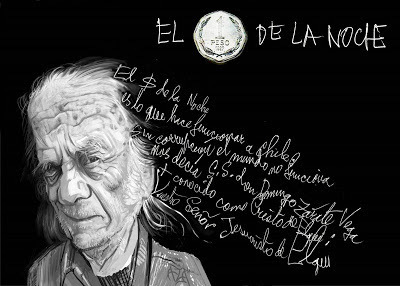 EL 1 PESO DE LA NOCHE
El $ de la Noche
es lo que hace funcionar a Chile
Sin corrupción el mundo no funciona
Nos decía S.S. don Domingo Zárate Vega
+ conocido como Cristo de Elqui:
Nuestro Señor Jesucristo de Elqui